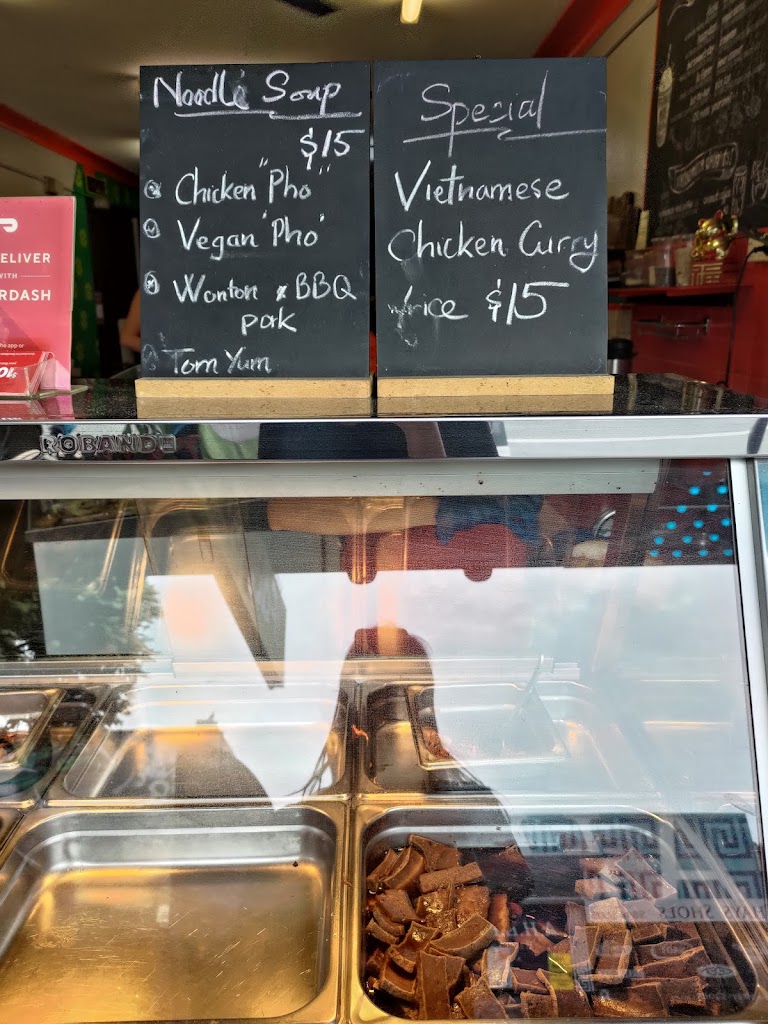 Noodle Soup
$15
Chicken "Pho"
Vegan "Pho"
Wonton & BBQ
pork
Tom Yum
Special
Vietnamese
Chicken Curry
/rice $15
ELIVER
WITH
RDASH
ROBANDE